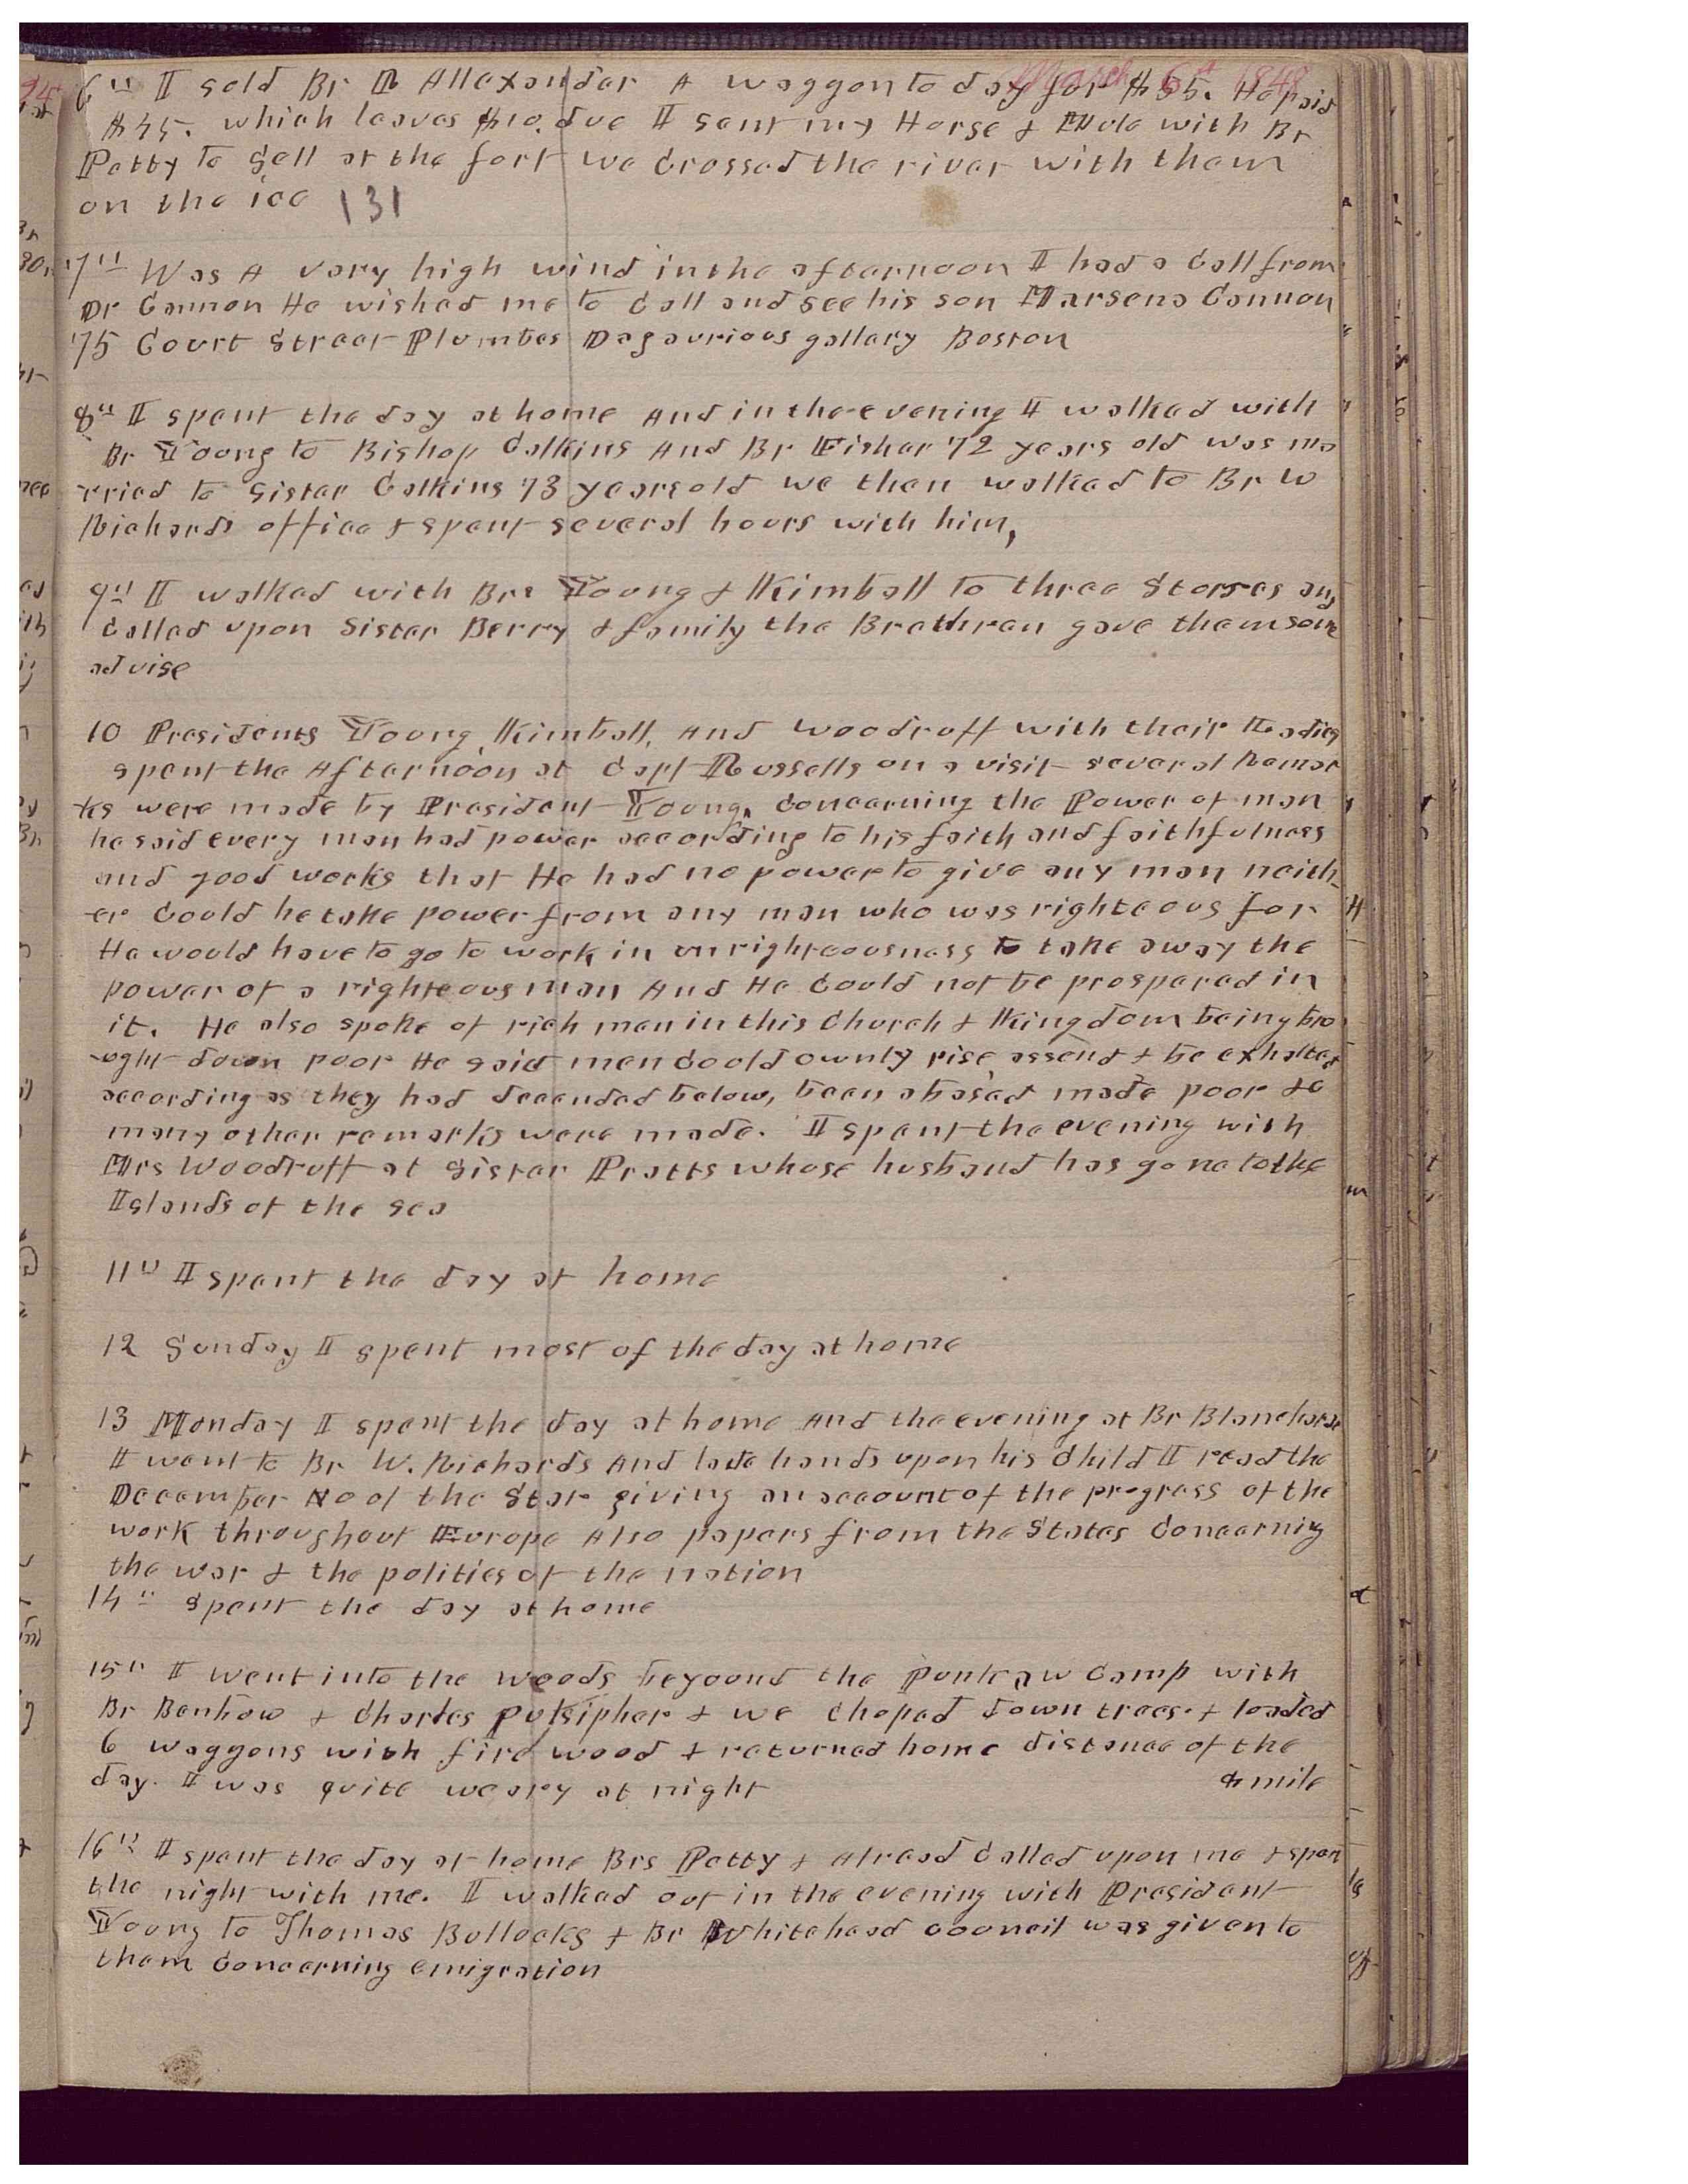 March 6th 1848
6th I sold Br R Allexander A waggon to day for $55. He paid
$45. which leaves $10. due I sent my Horse & Mule with Br
Petty to Sell at the fort we Crossed the river with them
on the ice 131
7th Was A very high wind in the afternoon I had a Call from
Dr Cannon He wished me to Call and see his son Marseno Cannon
75 Court Street Plumbes Dagaurious gallary Boston
8th I spent the day at home And in the evening I walked with
Br Young to Bishop Calkins And Br Fisher 72 years old was ma
rried to Sister Calkins 73 years old we then walked to Br W
Richards office & spent several hours with him,
9th I walked with Brs Young & Kimball to three Stores and
Called upon Sister Berry & family the Brethren gave them some
advise
10 Presidents Young, Kimball, And Woodruff with their Ladies
spent the Afternoon at Capt Russells on a visit several Remar
ks were made by President Young, Concerning the Power of man
he said every man had power according to his faith and faithfulness
and good works that He had no power to give any man neith-
er Could he take power from any man who was righteous for
He would have to go to work in unrighteousness to take away the
power of a righteous man And He Could not be prospered in
it. He also spoke of rich men in this Church & Kingdom being bro
ught down poor He said men Could ownly rise, assend & be exhalted
according as they had decended below, been abased made poor &c
many other remarks were made. I spent the evening with
Mrs Woodruff at Sister Pratts whose husband has gone to the
Islands of the sea
11th I spent the day at home
12 Sunday I spent most of the day at home
13 Monday I spent the day at home And the evening at Br Blanchards
I went to Br W. Richards And lade hands upon his Child I read the
December No of the Star giving an account of the progress of the
work throughout Europe Also papers from the States Concerning
the war & the politics of the nation
14th spent the day at home
15th I went into the woods beyound the Punkaw Camp with
Br Benbow & Charles Pulsipher & we Choped down trees & loaded
6 waggons with fire wood & returned home distance of the
day. I was quite weary at night mile
16th I spent the day at home Brs Petty & Alread Called upon me & spent
the night with me. I walked out in the evening with President
Young to Thomas Bullocks & Br Whitehead council was given to
them Concerning emigration